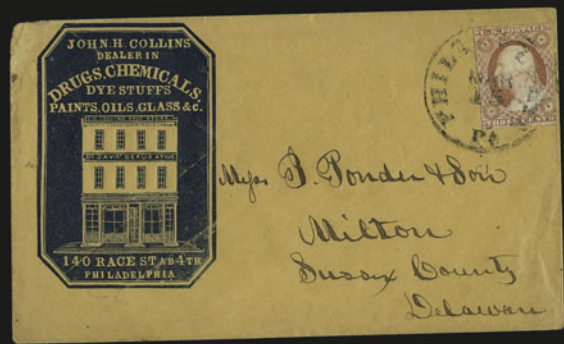 JOHN. H. COLLINS
DEALER IN
DRUGS, CHEMICALS,
DYE STUFFS
PAINTS, OILS, GLASS &c.
140 RACE ST AB 4TH
PHILADELPHIA
PHILADELPHIA
MAR
PA
U.S. POSTAGE
THREE CENTS
Mess P. Ponder & Son
Milton
Sussex County
Delaware